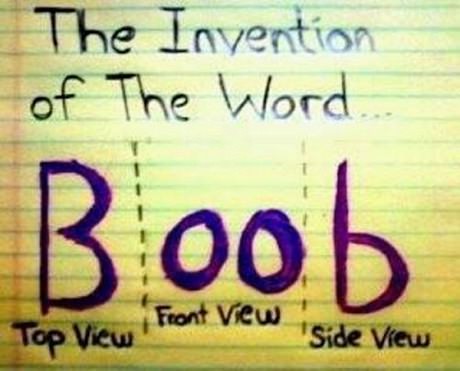 The Invention
of The Word...
B oo b
Top View Front View Side View